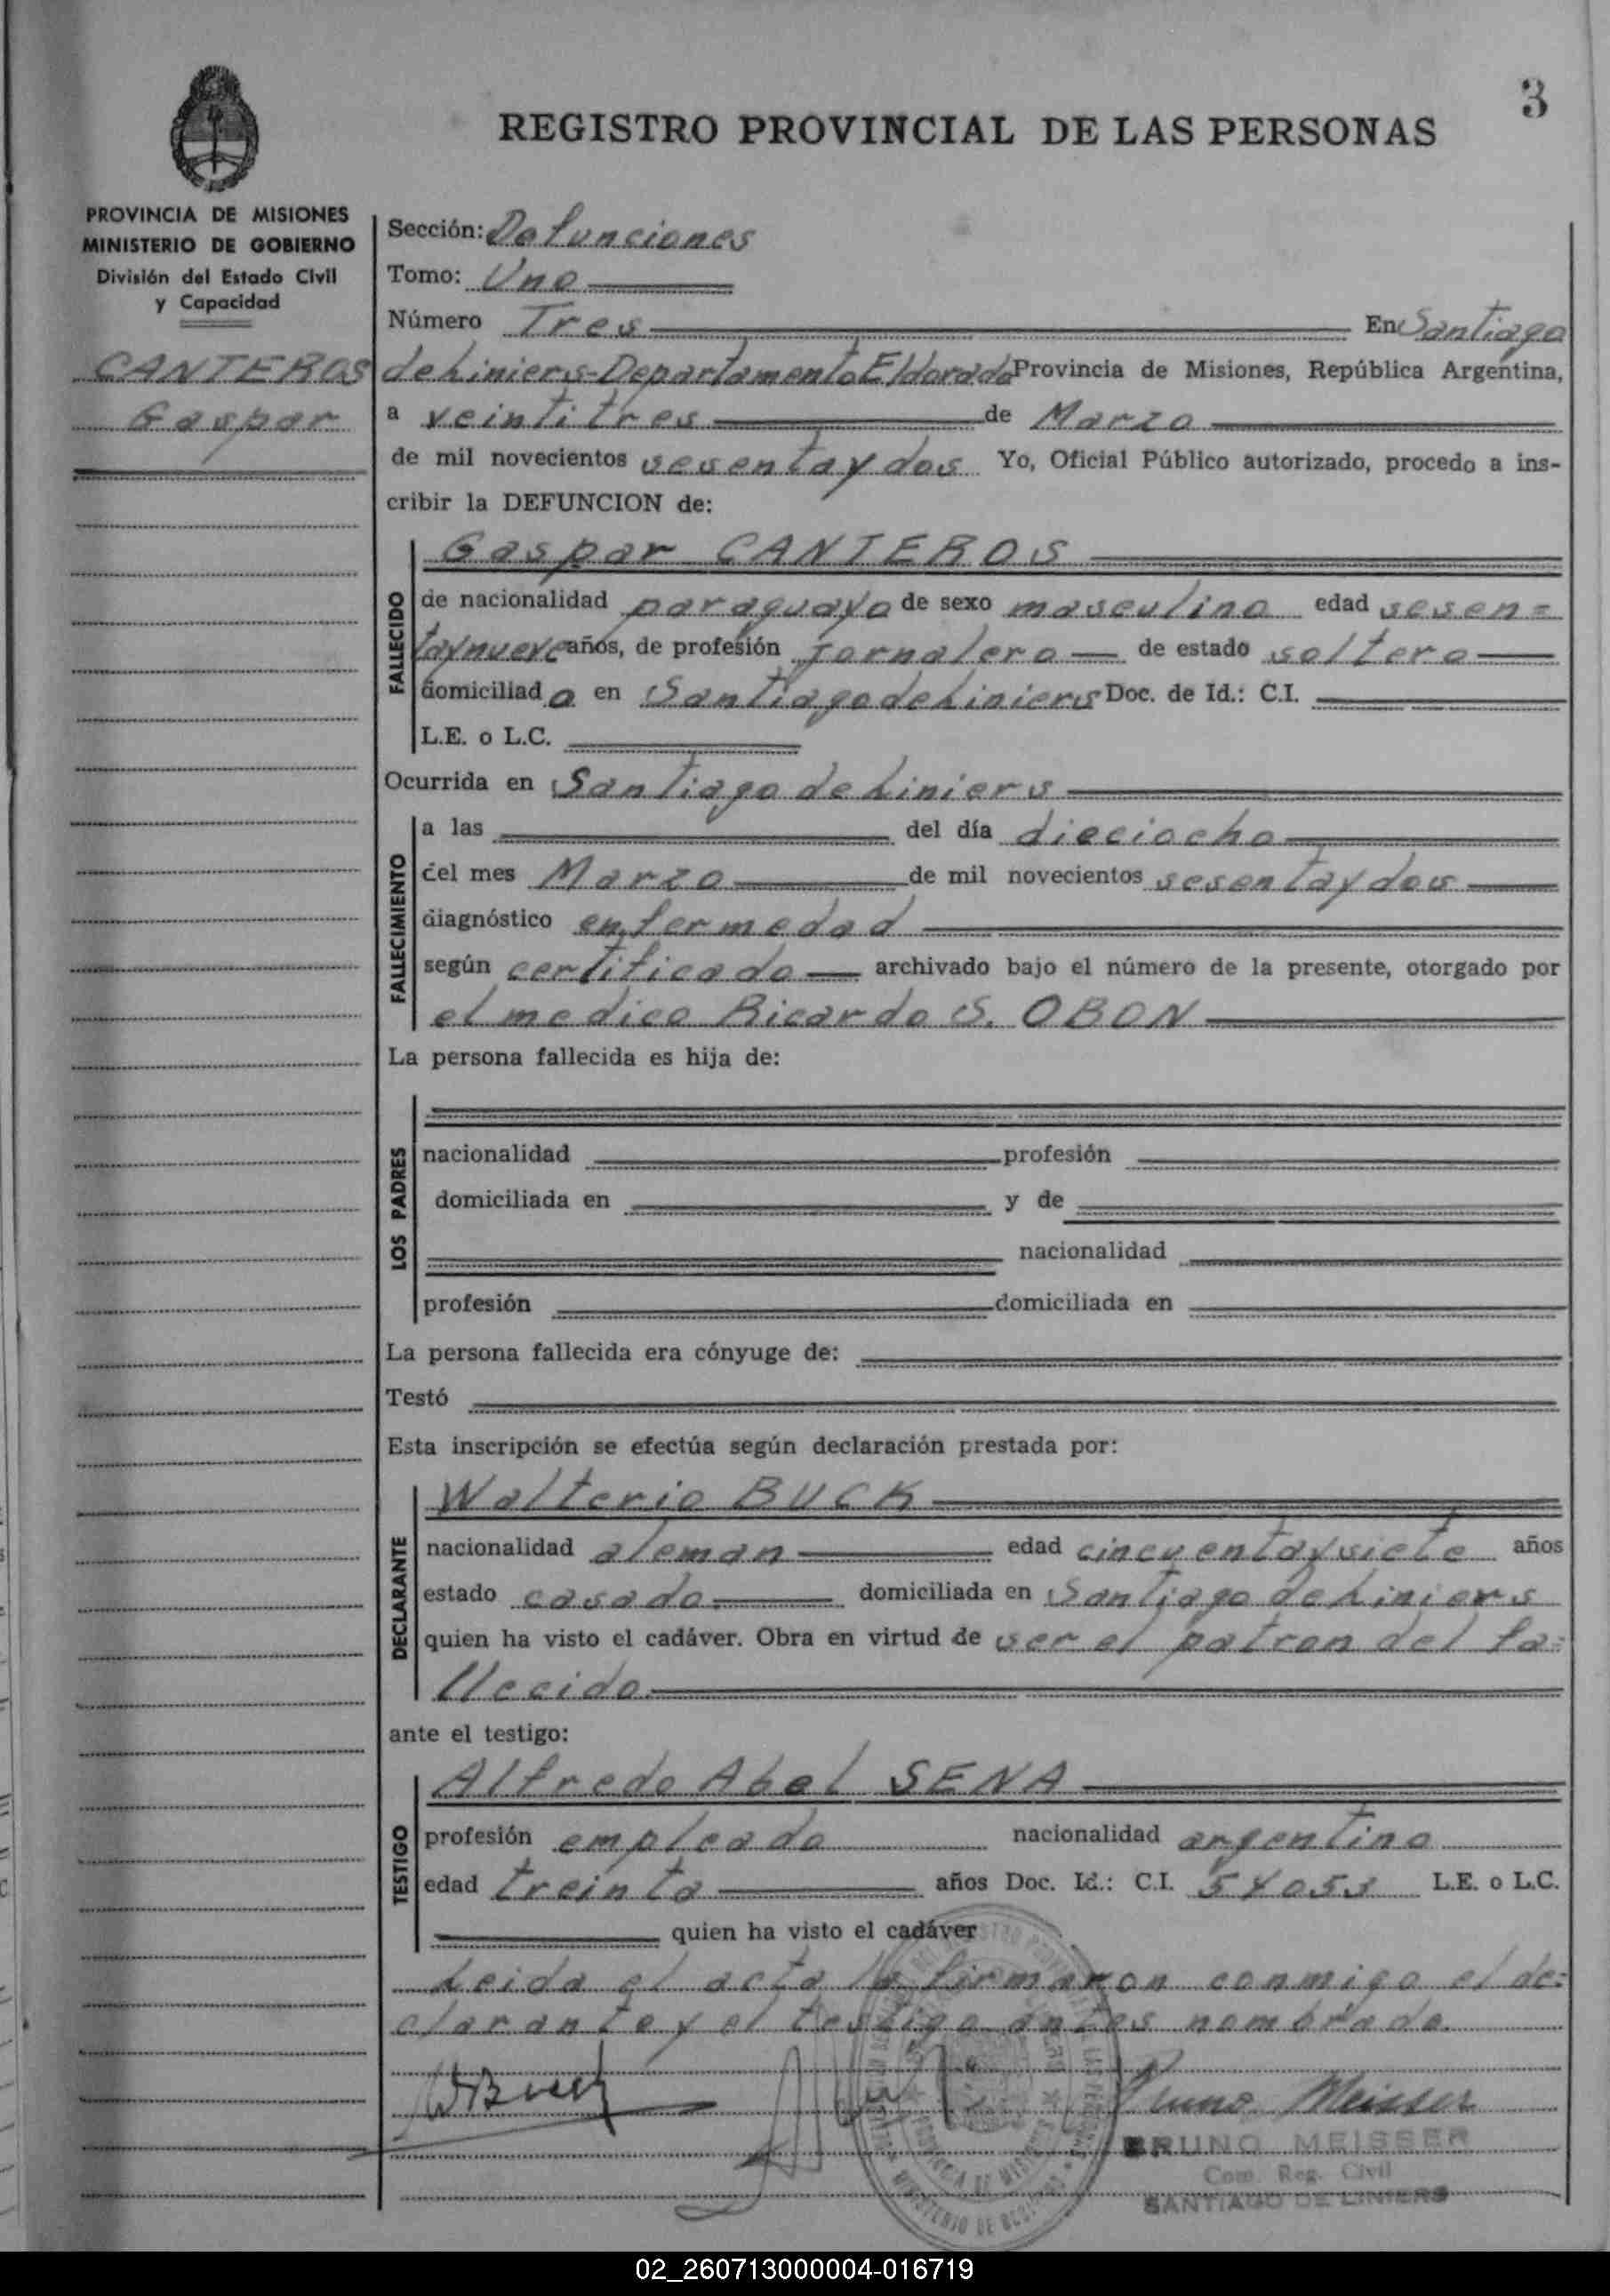 3
REGISTRO PROVINCIAL DE LAS PERSONAS
PROVINCIA DE MISIONES
MINISTERIO DE GOBIERNO
División del Estado Civil
y Capacidad
CANTEROS
Gaspar
Sección: Defunciones
Tomo: Uno
Número Tres En Santiago
de Liniers-Departamento Eldorado Provincia de Misiones, República Argentina,
a veintitres de Marzo
de mil novecientos sesentaydos Yo, Oficial Público autorizado, procedo a ins-
cribir la DEFUNCION de:
FALLECIDO
Gaspar CANTEROS
de nacionalidad paraguaya de sexo masculino edad sesen=
taynueve años, de profesión jornalero de estado soltero
domiciliado en Santiago de Liniers Doc. de Id.: C.I.
L.E. o L.C.
Ocurrida en Santiago de Liniers
FALLECIMIENTO
a las del día dieciocho
del mes Marzo de mil novecientos sesentaydos
diagnóstico enfermedad
según certificado archivado bajo el número de la presente, otorgado por
el medico Ricardo S. OBON
La persona fallecida es hija de:
LOS PADRES
nacionalidad profesión
domiciliada en y de
nacionalidad
profesión domiciliada en
La persona fallecida era cónyuge de:
Testó
Esta inscripción se efectúa según declaración prestada por:
DECLARANTE
Walterio BUCK
nacionalidad aleman edad cincuentaysiete años
estado casado domiciliada en Santiago de Liniers
quien ha visto el cadáver. Obra en virtud de ser el patron del fa=
llecido
ante el testigo:
TESTIGO
Alfredo Abel SENA
profesión empleado nacionalidad argentino
edad treinta años Doc. Id.: C.I. 54053 L.E. o L.C.
quien ha visto el cadáver
Leida el acta la firmaron conmigo el de=
clarante y el testigo antes nombrado.
WBuck
Bruno Meisser
BRUNO MEISSER
Com. Reg. Civil
SANTIAGO DE LINIERS
02_260713000004-016719